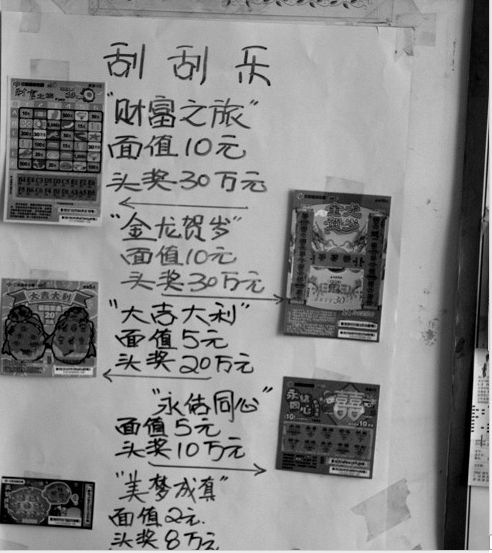 刮刮乐
"财富之旅"
面值10元
头奖30万元
"金龙贺岁"
面值10元
头奖30万元
"大吉大利"
面值5元
头奖20万元
"永结同心"
面值5元
头奖10万元
"美梦成真"
面值2元.
头奖8万元
财富之旅
金龙
贺岁
大吉大利
永结
同心
囍